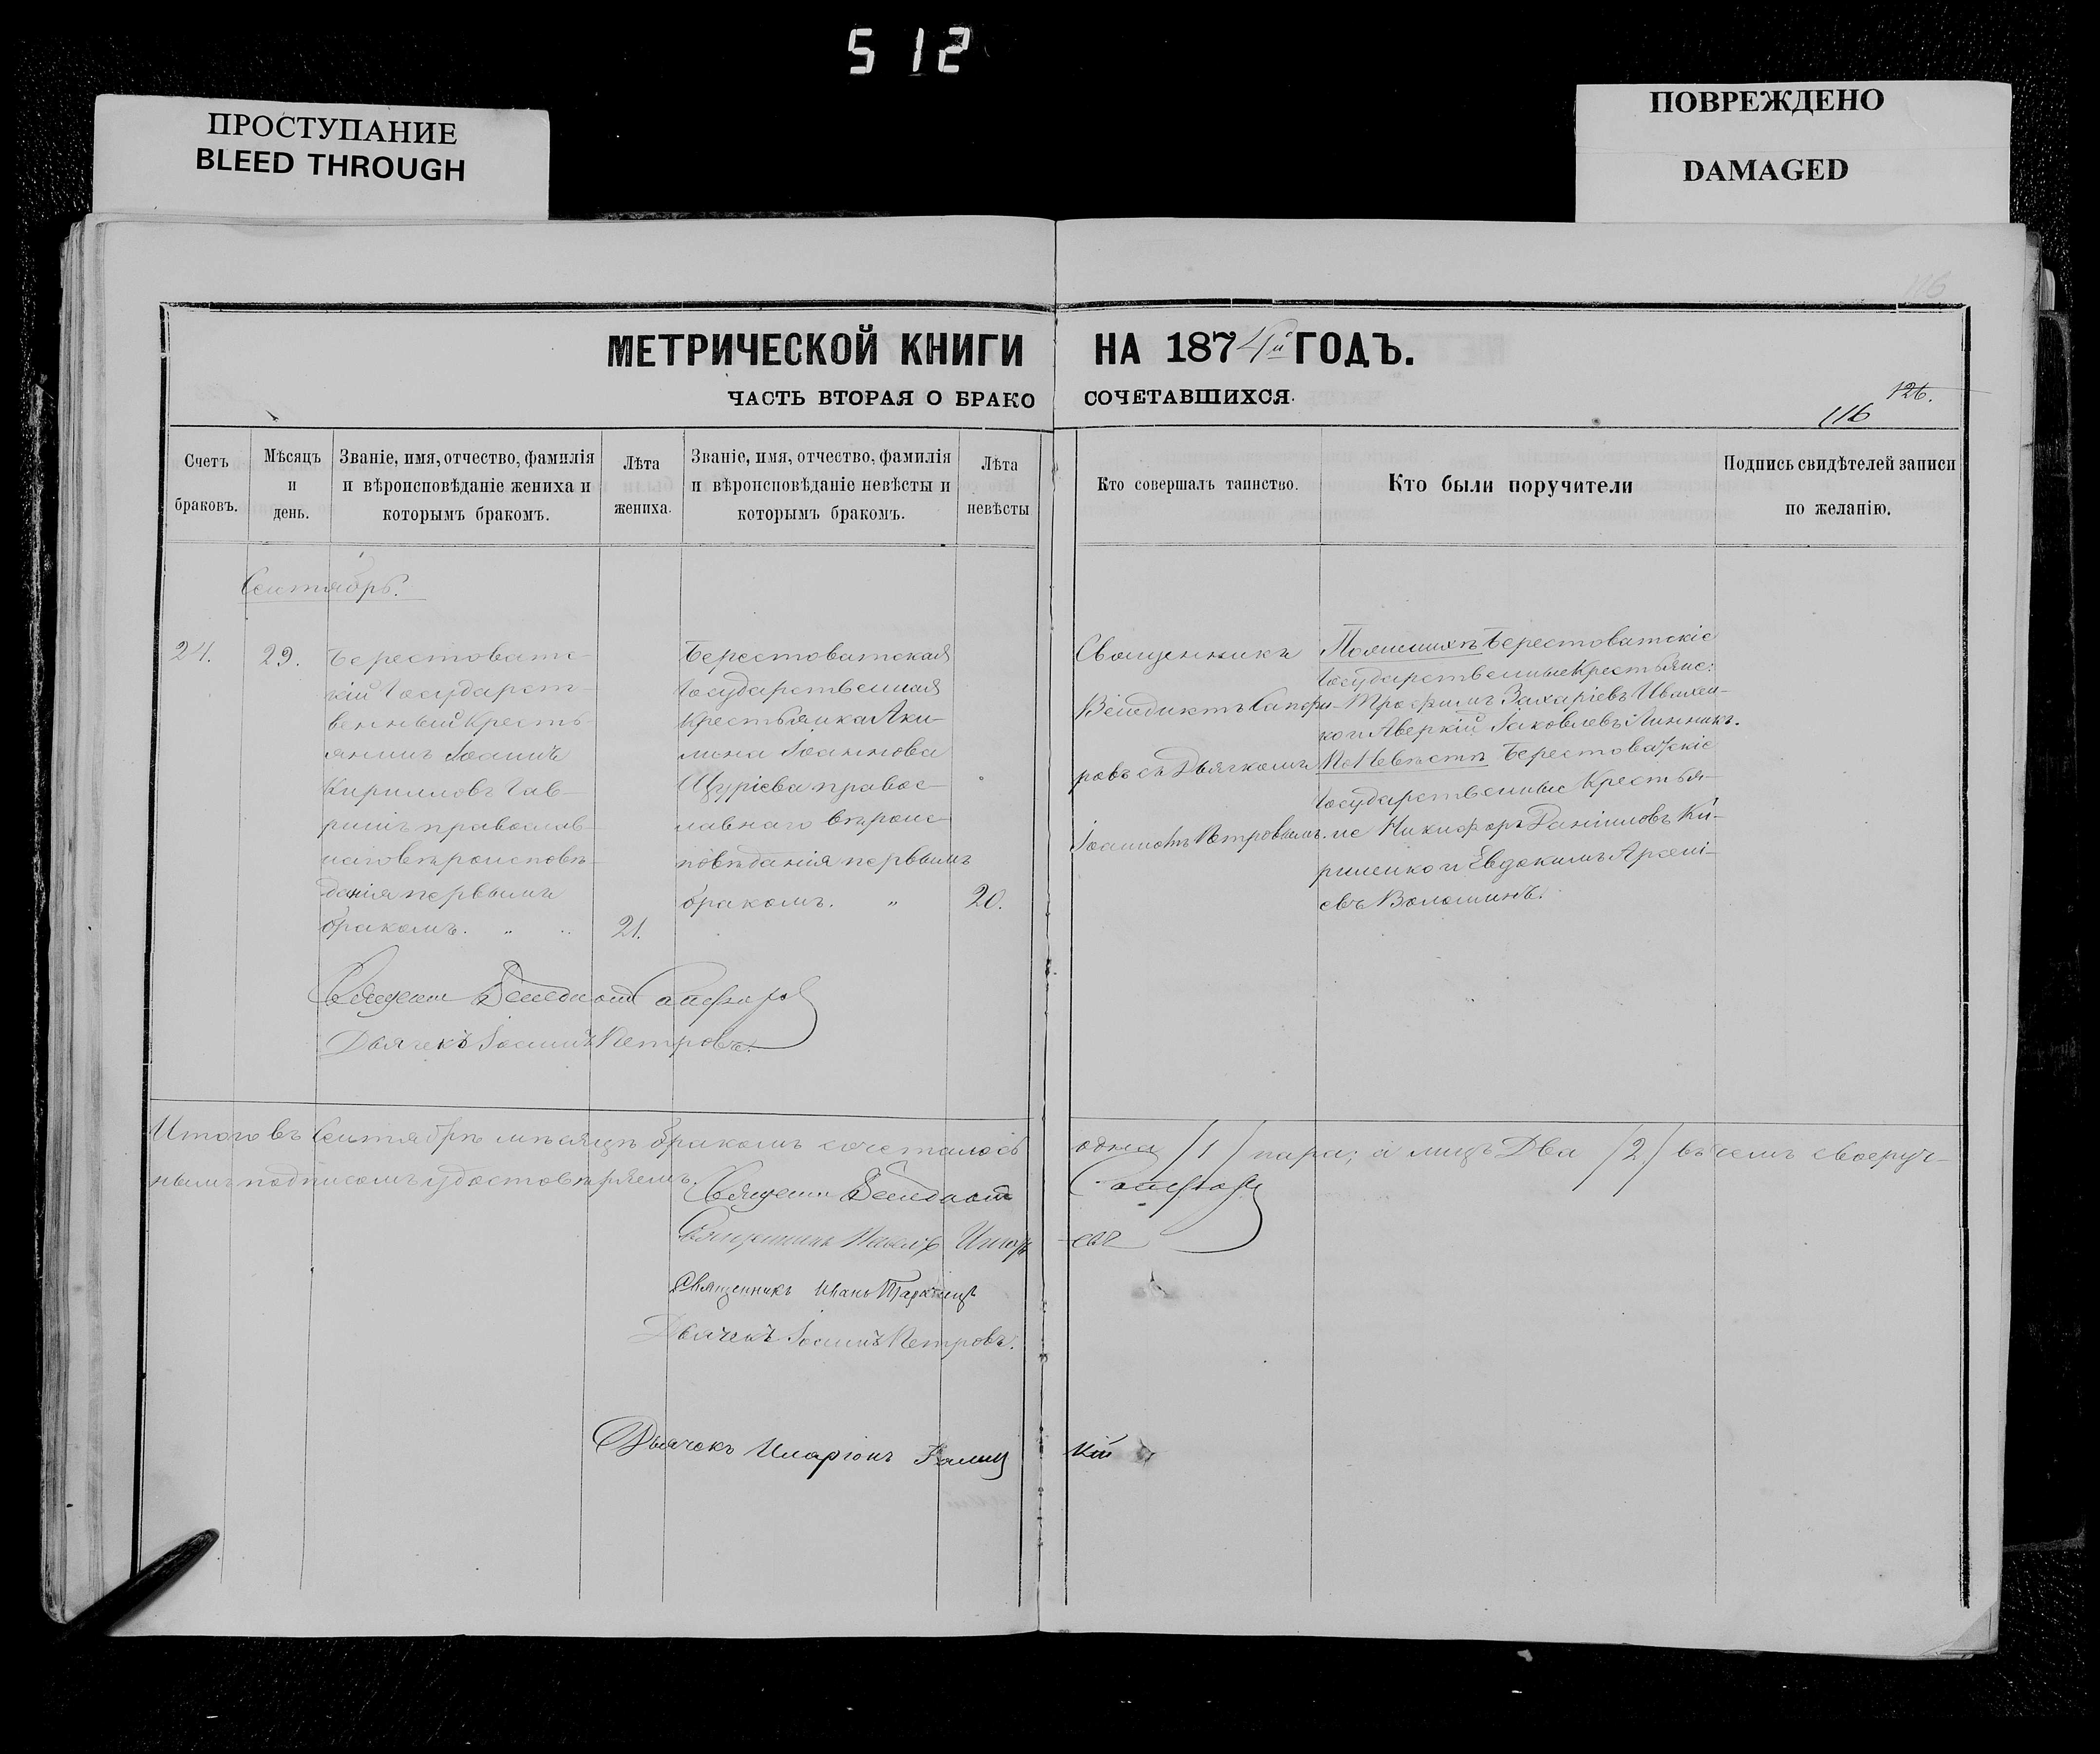 512
ПРОСТУПАНИЕ
BLEED THROUGH
ПОВРЕЖДЕНО
DAMAGED
МЕТРИЧЕСКОЙ КНИГИ НА 1874й ГОДЪ.
ЧАСТЬ ВТОРАЯ О БРАКОСОЧЕТАВШИХСЯ.
126.
116
Счетъ
браковъ.
Мѣсяцъ
и
день.
Званіе, имя, отчество, фамилія
и вѣроисповѣданіе жениха и
которымъ бракомъ.
Лѣта
жениха.
Званіе, имя, отчество, фамилія
и вѣроисповѣданіе невѣсты и
которымъ бракомъ.
Лѣта
невѣсты
Кто совершалъ таинство.
Кто были поручители
Подпись свидѣтелей записи
по желанію.
Сентябрь.
24.
29.
Берестоватс-
кій Государст-
венный Кресть-
янинъ Іоаннъ
Кирилловъ Гав-
ришъ православ-
наго вѣроисповѣ-
данія первымъ
бракомъ. „ „
21.
Берестоватская
Государственная
Крестьянка Аки-
лина Іоаннова
Щуріева правос-
лавнаго вѣроис-
повѣданія первымъ
бракомъ. „
20.
Священникъ
Венедиктъ Сапфи-
ровъ съ Дьячкомъ
Іоанномъ Петровымъ.
По женихѣ Берестоватскіе
Государственные Крестьяне:
Трофимъ Захаріевъ Ивахен-
ко и Аверкій Іаковлевъ Линникъ.
По Невѣстѣ Берестоватскіе
Государственные Крестья-
не Никифоръ Даніиловъ Ки-
риленко и Евдокимъ Арсені-
евъ Волошинъ.
Священ Венедиктъ Сапфиров
Дьячекъ Іоаннъ Петровъ.
Итого въ Сентябрѣ мѣсяцѣ бракомъ сочеталось одна /1/ пара; а лицъ Два /2/ въ чемъ своеруч-
нымъ подписомъ удостовѣряемъ.
Священ Венедикт Сапфиров
Священникъ Павелъ
Священникъ Иванъ
Дьячекъ Іоаннъ Петровъ.
Дьячокъ Иларіонъ